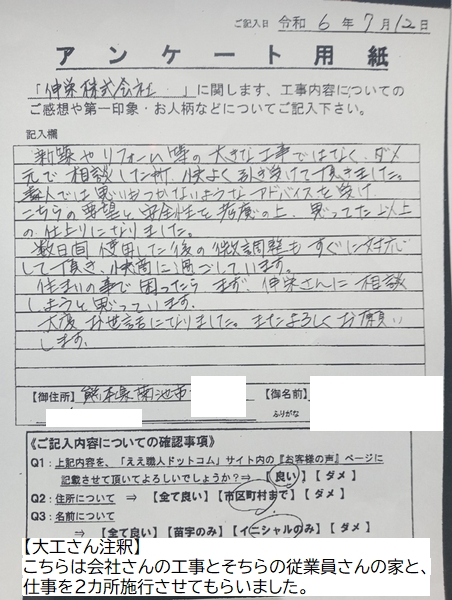 ご記入日 令和 6 年 7 月 12 日
アンケート用紙
「伸栄株式会社 」に関します、工事内容についての
ご感想や第一印象・お人柄などについてご記入下さい。
記入欄
新築やリフォーム等の大きな工事ではなく、ダメ
元で相談した所、快よく引き受けて頂きました。
素人では思いもつかないようなアドバイスを受け
こちらの要望と安全性を考慮の上、思ってた以上
の仕上りになりました。
数日間使用した後の微調整もすぐに対応
して頂き、快適に過ごしています。
住まいの事で困ったらまず、伸栄さんに相談
しようと思っています。
大変お世話になりました。またよろしくお願い
します。
【御住所】熊本県菊池市 【御名前】
ふりがな
《ご記入内容についての確認事項》
Q1：上記内容を、「ええ職人ドットコム」サイト内の『お客様の声』ページに
記載させて頂いてよろしいでしょうか？⇒ 【 良い 】【 ダメ 】
Q2：住所について ⇒ 【 全て良い 】【市区町村まで】【 ダメ 】
Q3：名前について
⇒ 【 全て良い 】【 苗字のみ 】【イニシャルのみ】【 ダメ 】
【大工さん注釈】
こちらは会社さんの工事とそちらの従業員さんの家と、
仕事を2カ所施行させてもらいました。